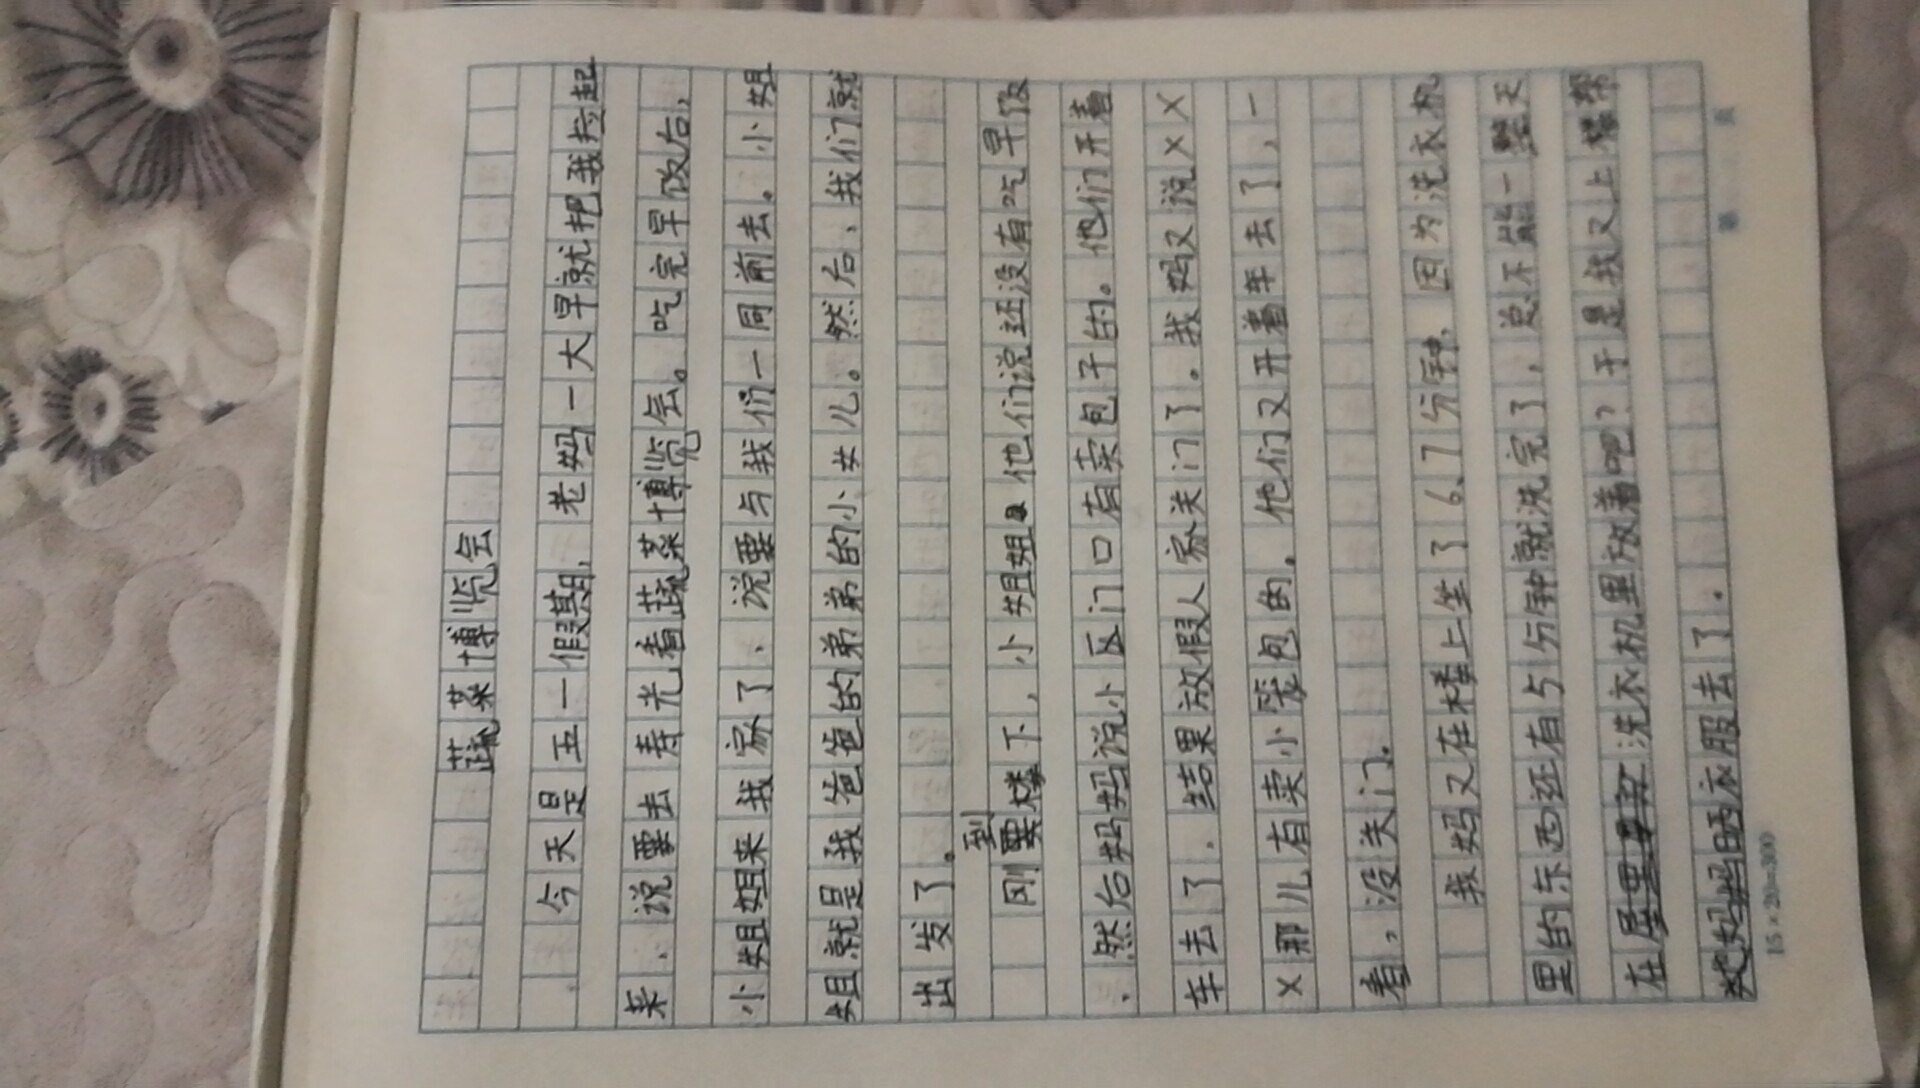 蔬菜博览会
今天是五一假期,老妈一大早就把我拎起
来、说要去寿光看蔬菜博览会。吃完早饭后,
小姐姐来我家了、说要与我们一同前去。小姐
姐就是我爸爸的弟弟的小女儿。然后、我们就
出发了。
刚到楼下,小姐姐他们说还没有吃早饭
、然后妈妈说小区门口有卖包子的。他们开着
车去了、结果放假人家关门了。我妈又说XX
X那儿有卖小笼包的。他们又开着车去了,一
看,没关门。
我妈又在楼上坐了6、7分钟、因为洗衣机
里的东西还有5分钟就洗完了,总不能一整天
在洗衣机里放着吧?于是我又上楼帮
妈妈晒衣服去了。
15×20=300
第 页